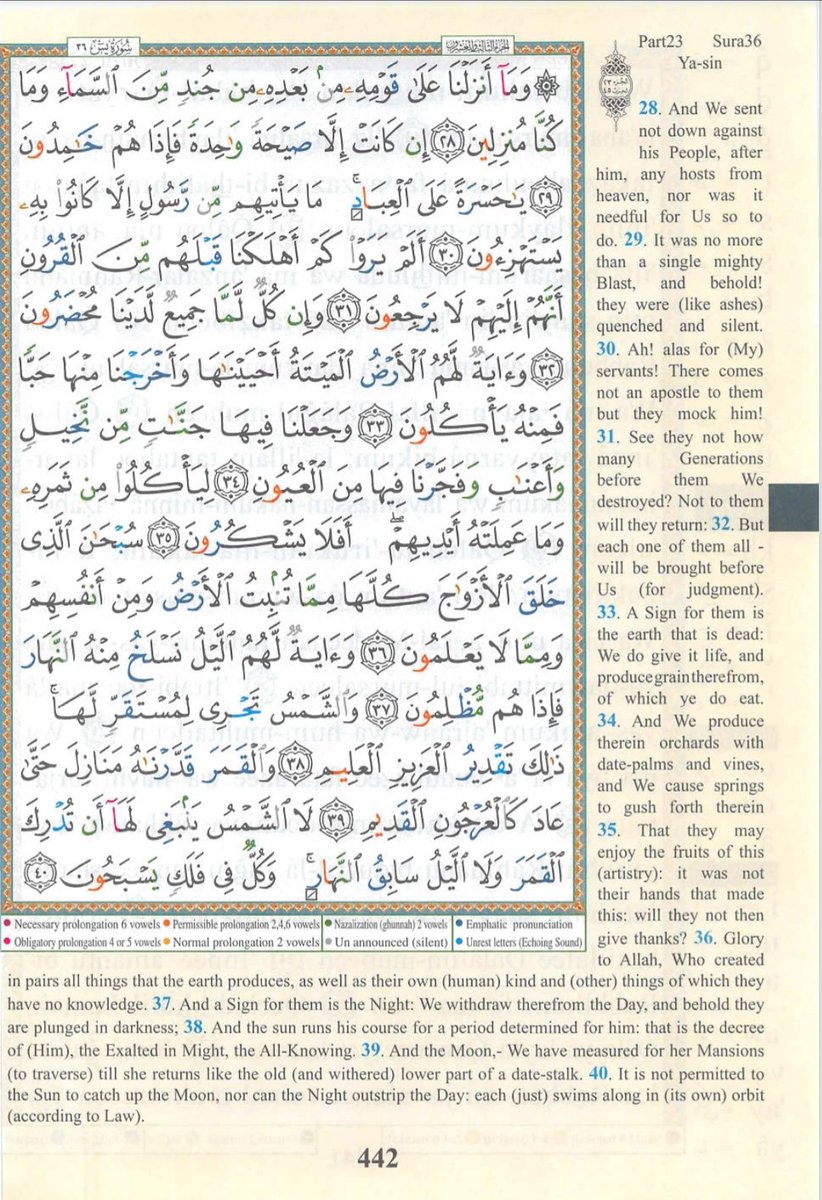 سُورَةُ يسٓ ٣٦
الجزء الثالث والعشرون
۞ وَمَآ أَنزَلْنَا عَلَىٰ قَوْمِهِۦ مِنۢ بَعْدِهِۦ مِن جُندٍ مِّنَ ٱلسَّمَآءِ وَمَا
كُنَّا مُنزِلِينَ ٢٨ إِن كَانَتْ إِلَّا صَيْحَةً وَٰحِدَةً فَإِذَا هُمْ خَٰمِدُونَ
٢٩ يَٰحَسْرَةً عَلَى ٱلْعِبَادِ ۚ مَا يَأْتِيهِم مِّن رَّسُولٍ إِلَّا كَانُوا۟ بِهِۦ
يَسْتَهْزِءُونَ ٣٠ أَلَمْ يَرَوْا۟ كَمْ أَهْلَكْنَا قَبْلَهُم مِّنَ ٱلْقُرُونِ
أَنَّهُمْ إِلَيْهِمْ لَا يَرْجِعُونَ ٣١ وَإِن كُلٌّ لَّمَّا جَمِيعٌ لَّدَيْنَا مُحْضَرُونَ
٣٢ وَءَايَةٌ لَّهُمُ ٱلْأَرْضُ ٱلْمَيْتَةُ أَحْيَيْنَٰهَا وَأَخْرَجْنَا مِنْهَا حَبًّا
فَمِنْهُ يَأْكُلُونَ ٣٣ وَجَعَلْنَا فِيهَا جَنَّٰتٍ مِّن نَّخِيلٍ
وَأَعْنَٰبٍ وَفَجَّرْنَا فِيهَا مِنَ ٱلْعُيُونِ ٣٤ لِيَأْكُلُوا۟ مِن ثَمَرِهِۦ
وَمَا عَمِلَتْهُ أَيْدِيهِمْ ۖ أَفَلَا يَشْكُرُونَ ٣٥ سُبْحَٰنَ ٱلَّذِى
خَلَقَ ٱلْأَزْوَٰجَ كُلَّهَا مِمَّا تُنۢبِتُ ٱلْأَرْضُ وَمِنْ أَنفُسِهِمْ
وَمِمَّا لَا يَعْلَمُونَ ٣٦ وَءَايَةٌ لَّهُمُ ٱلَّيْلُ نَسْلَخُ مِنْهُ ٱلنَّهَارَ
فَإِذَا هُم مُّظْلِمُونَ ٣٧ وَٱلشَّمْسُ تَجْرِى لِمُسْتَقَرٍّ لَّهَا ۚ
ذَٰلِكَ تَقْدِيرُ ٱلْعَزِيزِ ٱلْعَلِيمِ ٣٨ وَٱلْقَمَرَ قَدَّرْنَٰهُ مَنَازِلَ حَتَّىٰ
عَادَ كَٱلْعُرْجُونِ ٱلْقَدِيمِ ٣٩ لَا ٱلشَّمْسُ يَنۢبَغِى لَهَآ أَن تُدْرِكَ
ٱلْقَمَرَ وَلَا ٱلَّيْلُ سَابِقُ ٱلنَّهَارِ ۚ وَكُلٌّ فِى فَلَكٍ يَسْبَحُونَ ٤٠
Necessary prolongation 6 vowels Permissible prolongation 2,4,6 vowels Nazalization (ghunnah) 2 vowels Emphatic pronunciation
Obligatory prolongation 4 or 5 vowels Normal prolongation 2 vowels Un announced (silent) Unrest letters (Echoing Sound)
Part23 Sura36
Ya-sin
28. And We sent
not down against
his People, after
him, any hosts from
heaven, nor was it
needful for Us so to
do. 29. It was no more
than a single mighty
Blast, and behold!
they were (like ashes)
quenched and silent.
30. Ah! alas for (My)
servants! There comes
not an apostle to them
but they mock him!
31. See they not how
many Generations
before them We
destroyed? Not to them
will they return: 32. But
each one of them all -
will be brought before
Us (for judgment).
33. A Sign for them is
the earth that is dead:
We do give it life, and
produce grain therefrom,
of which ye do eat.
34. And We produce
therein orchards with
date-palms and vines,
and We cause springs
to gush forth therein
35. That they may
enjoy the fruits of this
(artistry): it was not
their hands that made
this: will they not then
give thanks? 36. Glory
to Allah, Who created
in pairs all things that the earth produces, as well as their own (human) kind and (other) things of which they
have no knowledge. 37. And a Sign for them is the Night: We withdraw therefrom the Day, and behold they
are plunged in darkness; 38. And the sun runs his course for a period determined for him: that is the decree
of (Him), the Exalted in Might, the All-Knowing. 39. And the Moon,- We have measured for her Mansions
(to traverse) till she returns like the old (and withered) lower part of a date-stalk. 40. It is not permitted to
the Sun to catch up the Moon, nor can the Night outstrip the Day: each (just) swims along in (its own) orbit
(according to Law).
442